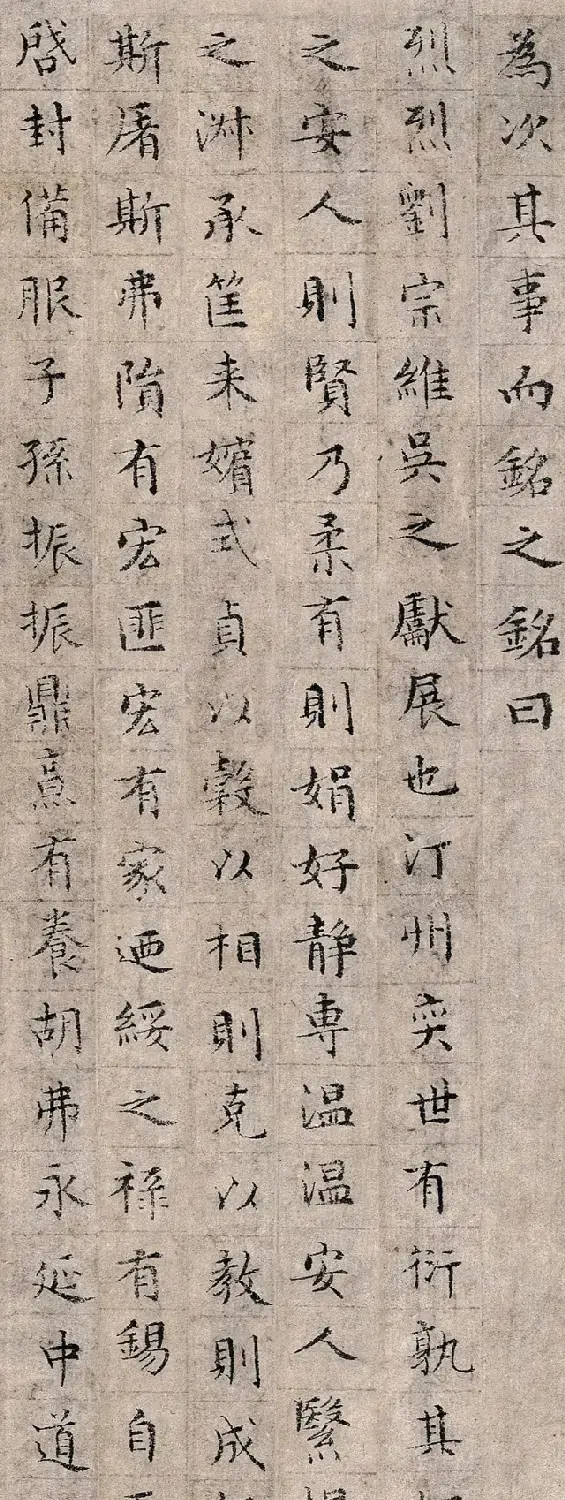 為次其事而銘之銘曰
烈烈劉宗維吳之獻展也汀州奕世有衍孰其
之安人則賢乃柔有則娟好靜専温温安人繄
之淋承筐来嬪式貞以穀以相則克以教則成
斯屠斯弗隋有宏匪宏有家迺綏之祿有錫自
啓封備服子孫振振鼎烹有養胡弗永延中道